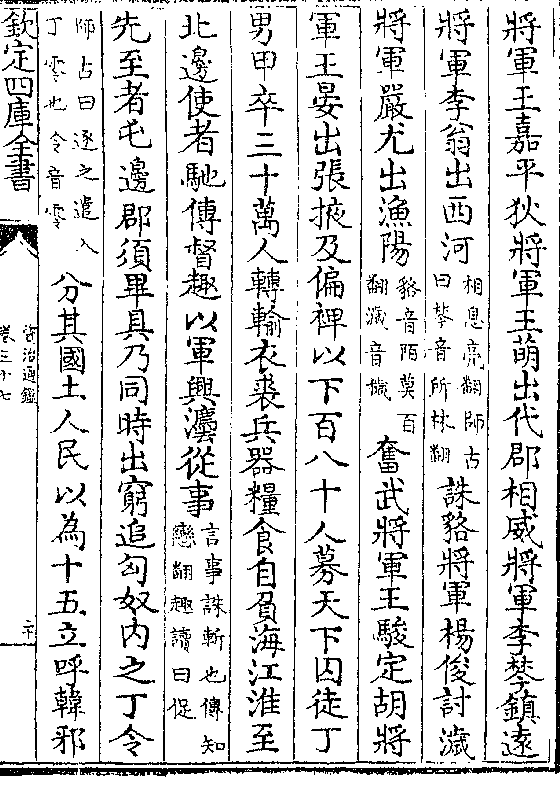 將軍王嘉平狄將軍王萌出代郡相威將軍李棽鎮遠
將軍李翁出西河相息亮翻師古曰棽音所林翻誅貉將軍楊俊討濊
將軍嚴尤出漁陽貉音陌莫百翻濊音穢奮武將軍王駿定胡將
軍王晏出張掖及偏裨以下百八十人募天下囚徒丁
男甲卒三十萬人轉輸衣裘兵器糧食自負海江淮至
北邊使者馳傳督趣以軍興灋從事言事誅斬也傳知戀翻趣讀曰促
先至者屯邊郡須畢具乃同時出窮追匈奴內之丁令
師古曰逐之遣入丁零也令音零分其國土人民以為十五立呼韓邪
欽定四庫全書
資治通鑑
卷三十七